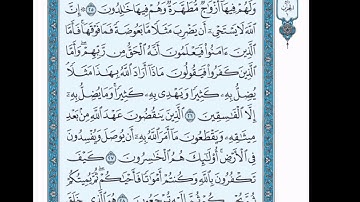 وَلَهُمْ فِيهَا أَزْوَاجٌ مُّطَهَّرَةٌ وَهُمْ فِيهَا خَالِدُونَ ٢٥ ۞ إِنَّ
اللَّهَ لَا يَسْتَحْيِي أَن يَضْرِبَ مَثَلًا مَّا بَعُوضَةً فَمَا فَوْقَهَا فَأَمَّا
الَّذِينَ آمَنُوا فَيَعْلَمُونَ أَنَّهُ الْحَقُّ مِن رَّبِّهِمْ وَأَمَّا
الَّذِينَ كَفَرُوا فَيَقُولُونَ مَاذَا أَرَادَ اللَّهُ بِهَٰذَا مَثَلًا
يُضِلُّ بِهِ كَثِيرًا وَيَهْدِي بِهِ كَثِيرًا وَمَا يُضِلُّ بِهِ
إِلَّا الْفَاسِقِينَ ٢٦ الَّذِينَ يَنقُضُونَ عَهْدَ اللَّهِ مِن بَعْدِ
مِيثَاقِهِ وَيَقْطَعُونَ مَا أَمَرَ اللَّهُ بِهِ أَن يُوصَلَ وَيُفْسِدُونَ
فِي الْأَرْضِ أُولَٰئِكَ هُمُ الْخَاسِرُونَ ٢٧ كَيْفَ
تَكْفُرُونَ بِاللَّهِ وَكُنتُمْ أَمْوَاتًا فَأَحْيَاكُمْ ثُمَّ يُمِيتُكُمْ
ثُمَّ يُحْيِيكُمْ ثُمَّ إِلَيْهِ تُرْجَعُونَ ٢٨ هُوَ الَّذِي خَلَقَ